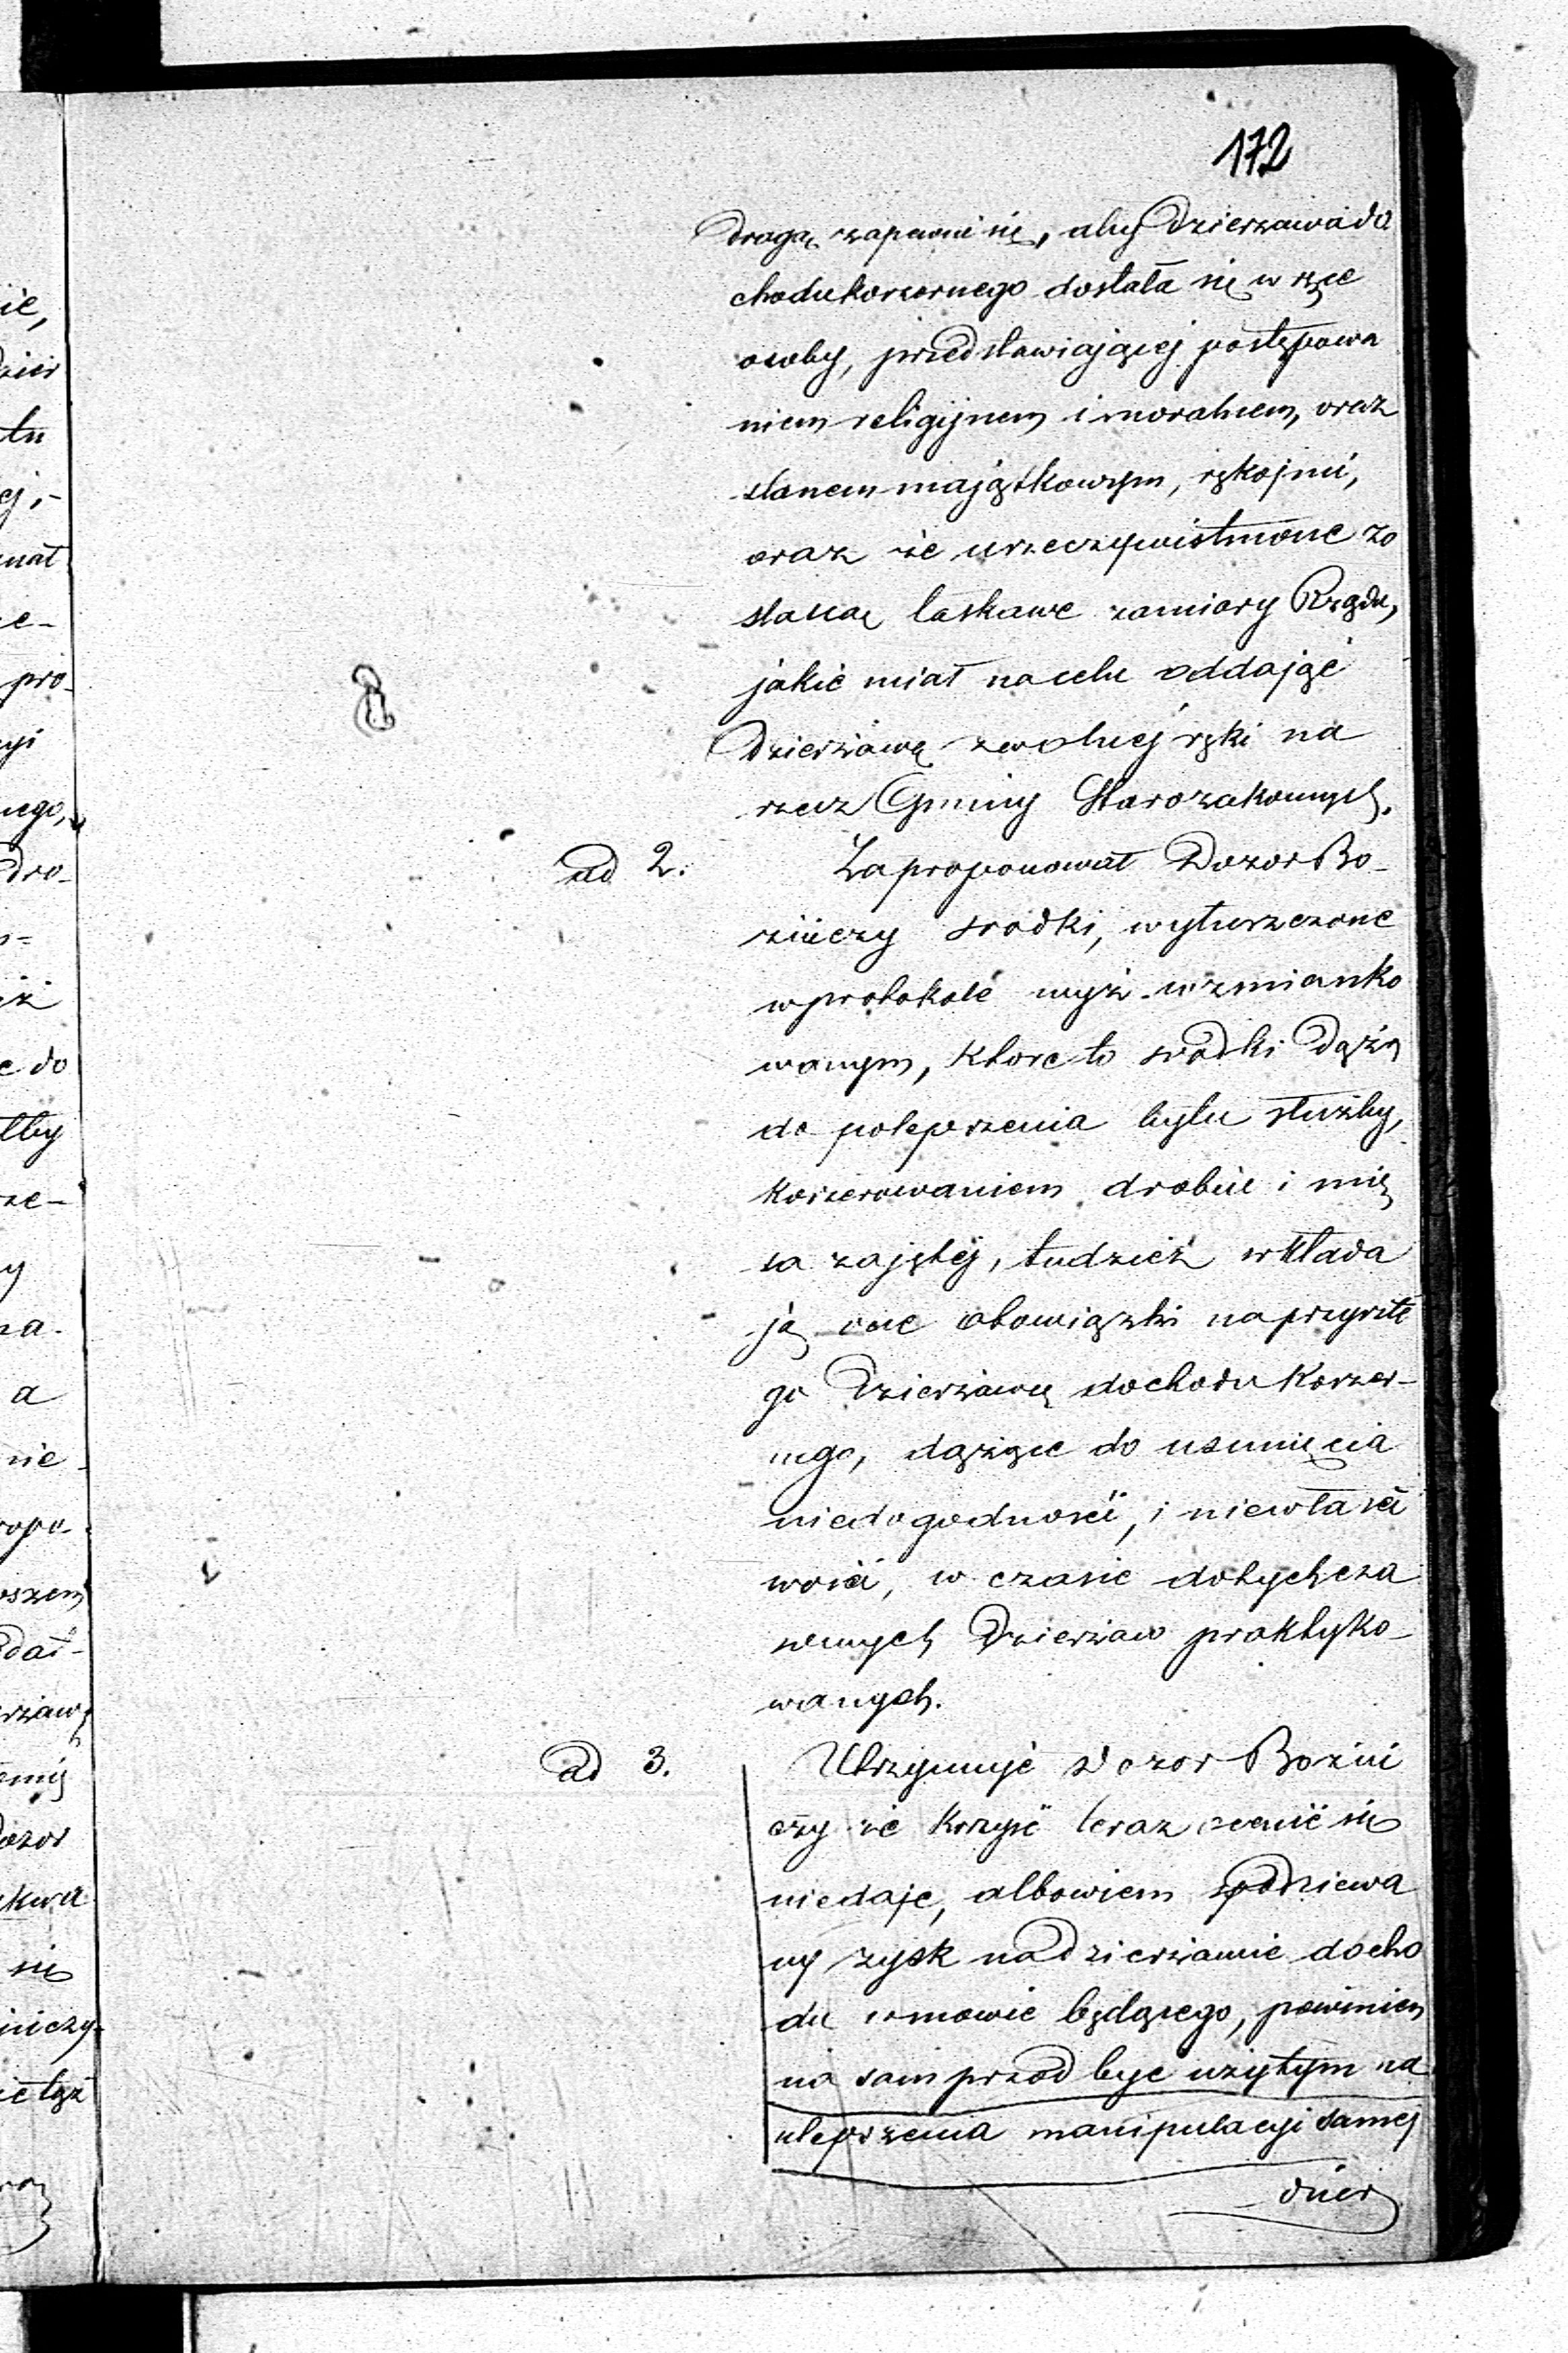 172
drogą zapewni się, aby Dzierzawa do
chodu korzernego dostała się w ręce
osoby, przedstawiającej postępowa
niem religijnem i moralnem, oraz
stanem majątkowym, rękojmi,
oraz że urzeczywistnione zo
staną łaskawe zamiary Rządu,
jakie miał na celu oddając
Dzierżawę z wolnej ręki na
rzecz Gminy Starozakonnych.
ad 2. Zaproponował Dozor Bo-
żniczy srodki, wyłuszczone
w protokole wyż wzmianko
wanym, ktore to srodki dążą
do polepszenia bytu służby,
koszerowaniem drobiu i mię
sa zajętej, tudzież wkłada
ją one obowiązki na przyszłe
go Dzierżawcę dochodu Korzer-
nego, dążące do usunięcia
niedogodności, i niewłaści
wości, w czasie dotychcza
sowych Dzierżaw praktyko-
wanych.
ad 3. Utrzymuje Dozor Bożni
czy że korzyść teraz ocenić się
niedaje, albowiem spodziewa
ny zysk na Dzierżawie docho
du w mowie będącego, powinien
na sam przod być użytym na
ulepszenia manipulacyi samej
dzier
ie,
tu
ej,-
pro-
nego,
dro-
c do
a
nie-
ropo-
dozor
się